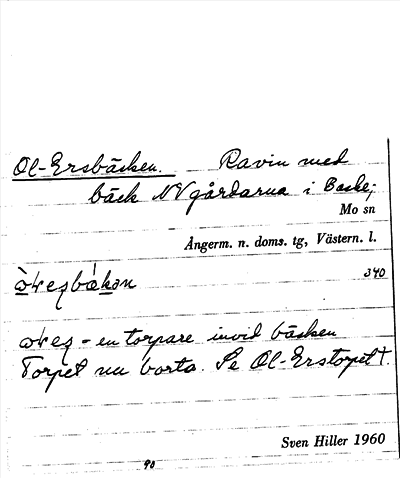 Ol-Ersbäcken. Ravin med
bäck NV gårdarna i Backe;
Mo sn
Ångerm. n. doms. tg, Västern. l.
340
– en torpare invid bäcken
Torpet nu borta. Se Ol-Erstorpet †.
Sven Hiller 1960
90